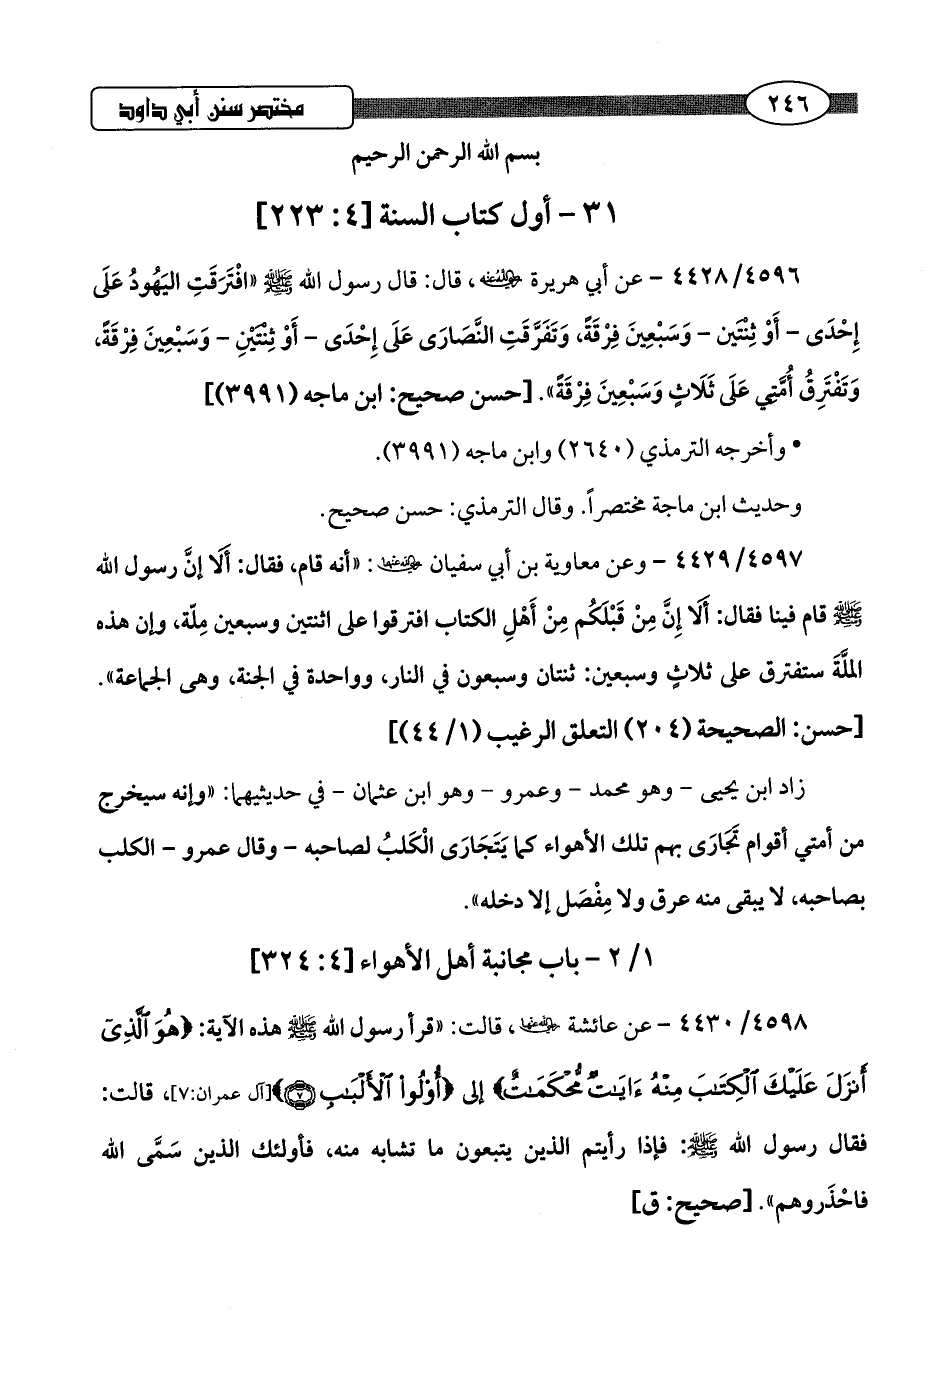 مختصر سنن أبي داود
٢٤٦
بسم الله الرحمن الرحيم
٣١ - أول كتاب السنة [٤: ٢٢٣]
٤٤٢٨/٤٥٩٦ - عن أبي هريرة رضي الله عنه، قال: قال رسول الله ﷺ «افْتَرَقَتِ اليَهُودُ عَلَى
إِحْدَى - أَوْ ثِنْتَين - وَسَبْعِينَ فِرْقَةً، وَتَفَرَّقَتِ النَّصَارَى عَلَى إِحْدَى - أَوْ ثِنْتَيْنِ - وَسَبْعِينَ فِرْقَةً،
وَتَفْتَرِقُ أُمَّتِي عَلَى ثَلَاثٍ وَسَبْعِينَ فِرْقَةً». [حسن صحيح: ابن ماجه (٣٩٩١)]
• وأخرجه الترمذي (٢٦٤٠) وابن ماجه (٣٩٩١).
وحديث ابن ماجة مختصراً. وقال الترمذي: حسن صحيح.
٤٤٢٩/٤٥٩٧ - وعن معاوية بن أبي سفيان رضي الله عنهما: «أنه قام، فقال: أَلَا إنَّ رسول الله
ﷺ قام فينا فقال: أَلَا إِنَّ مِنْ قَبْلَكُم مِنْ أَهْلِ الكتاب افترقوا على اثنتين وسبعين مِلّة، وإن هذه
الملَّةَ ستفترق على ثلاثٍ وسبعين: ثنتان وسبعون في النار، وواحدة في الجنة، وهى الجماعة».
[حسن: الصحيحة (٢٠٤) التعلق الرغيب (١/ ٤٤)]
زاد ابن يحيى - وهو محمد - وعمرو - وهو ابن عثمان - في حديثيهما: «وإنه سيخرج
من أمتي أقوام تَجَارَى بهم تلك الأهواء كما يَتَجَارَى الْكَلبُ لصاحبه - وقال عمرو - الكلب
بصاحبه، لا يبقى منه عرق ولا مِفْصَل إلا دخله».
١/ ٢ - باب مجانبة أهل الأهواء [٤: ٣٢٤]
٤٤٣٠/٤٥٩٨ - عن عائشة رضي الله عنها، قالت: «قرأ رسول الله ﷺ هذه الآية: ﴿هُوَ ٱلَّذِىٓ
أَنزَلَ عَلَيْكَ ٱلْكِتَٰبَ مِنْهُ ءَايَٰتٌ مُّحْكَمَٰتٌ﴾ إلى ﴿أُوْلُواْ ٱلْأَلْبَٰبِ ٧﴾ [آل عمران:٧]، قالت:
فقال رسول الله ﷺ: فإذا رأيتم الذين يتبعون ما تشابه منه، فأولئك الذين سَمَّى الله
فاحْذَروهم». [صحيح: ق]